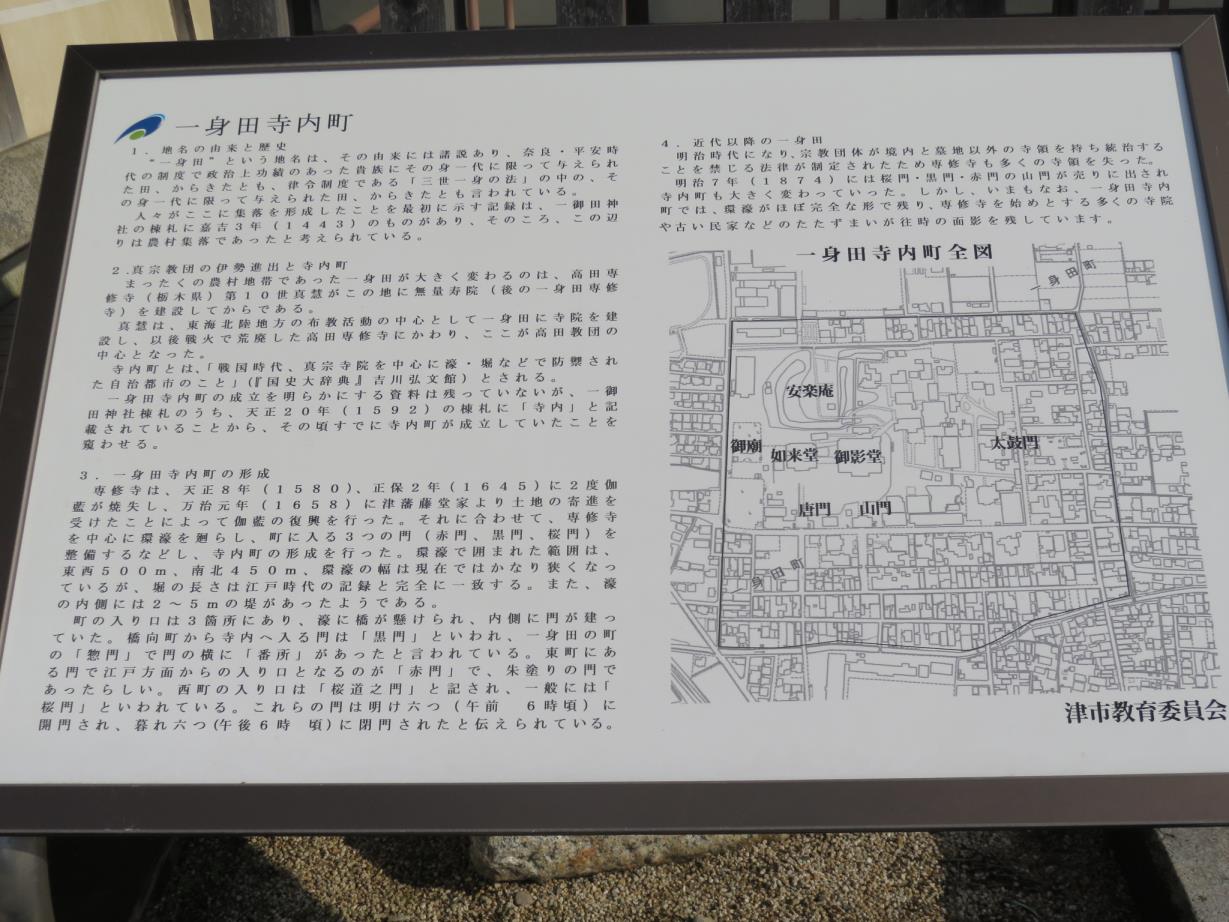 一身田寺内町
1. 地名の由来と歴史
“一身田”という地名は、その由来には諸説あり、奈良・平安時
代の制度で政治上功績のあった貴族にその身一代に限って与えられ
た田、からきたとも、律令制度である「三世一身の法」の中の、そ
の身一代に限って与えられた田、からきたとも言われている。
人々がここに集落を形成したことを最初に示す記録は、一御田神
社の棟札に嘉吉3年(1443)のものがあり、そのころ、この辺
りは農村集落であったと考えられている。
2.真宗教団の伊勢進出と寺内町
まったくの農村地帯であった一身田が大きく変わるのは、高田専
修寺(栃木県)第10世真慧がこの地に無量寿院(後の一身田専修
寺)を建設してからである。
真慧は、東海北陸地方の布教活動の中心として一身田に寺院を建
設し、以後戦火で荒廃した高田専修寺にかわり、ここが高田教団の
中心となった。
寺内町とは、「戦国時代、真宗寺院を中心に濠・堀などで防禦され
た自治都市のこと」(『国史大辞典』吉川弘文館)とされる。
一身田寺内町の成立を明らかにする資料は残っていないが、一御
田神社棟札のうち、天正20年(1592)の棟札に「寺内」と記
載されていることから、その頃すでに寺内町が成立していたことを
窺わせる。
3. 一身田寺内町の形成
専修寺は、天正8年(1580)、正保2年(1645)に2度伽
藍が焼失し、万治元年(1658)に津藩藤堂家より土地の寄進を
受けたことによって伽藍の復興を行った。それに合わせて、専修寺
を中心に環濠を廻らし、町に入る3つの門(赤門、黒門、桜門)を
整備するなどし、寺内町の形成を行った。環濠で囲まれた範囲は、
東西500m、南北450m、環濠の幅は現在ではかなり狭くなっ
ているが、堀の長さは江戸時代の記録と完全に一致する。また、濠
の内側には2~5mの堤があったようである。
町の入り口は3箇所にあり、濠に橋が懸けられ、内側に門が建っ
ていた。橋向町から寺内へ入る門は「黒門」といわれ、一身田の町
の「惣門」で門の横に「番所」があったと言われている。東町にあ
る門で江戸方面からの入り口となるのが「赤門」で、朱塗りの門で
あったらしい。西町の入り口は「桜道之門」と記され、一般には「
桜門」といわれている。これらの門は明け六つ(午前 6時頃)に
開門され、暮れ六つ(午後6時 頃)に閉門されたと伝えられている。
4. 近代以降の一身田
明治時代になり、宗教団体が境内と墓地以外の寺領を持ち統治する
ことを禁じる法律が制定されたため専修寺も多くの寺領を失った。
明治7年(1874)には桜門・黒門・赤門の山門が売りに出され
寺内町も大きく変わっていった。しかし、いまもなお、一身田寺内
町では、環濠がほぼ完全な形で残り、専修寺を始めとする多くの寺院
や古い民家などのたたずまいが往時の面影を残しています。
一身田寺内町全図
一身田町
安楽庵
御廟
如来堂
御影堂
太鼓門
唐門
山門
一身田町
津市教育委員会